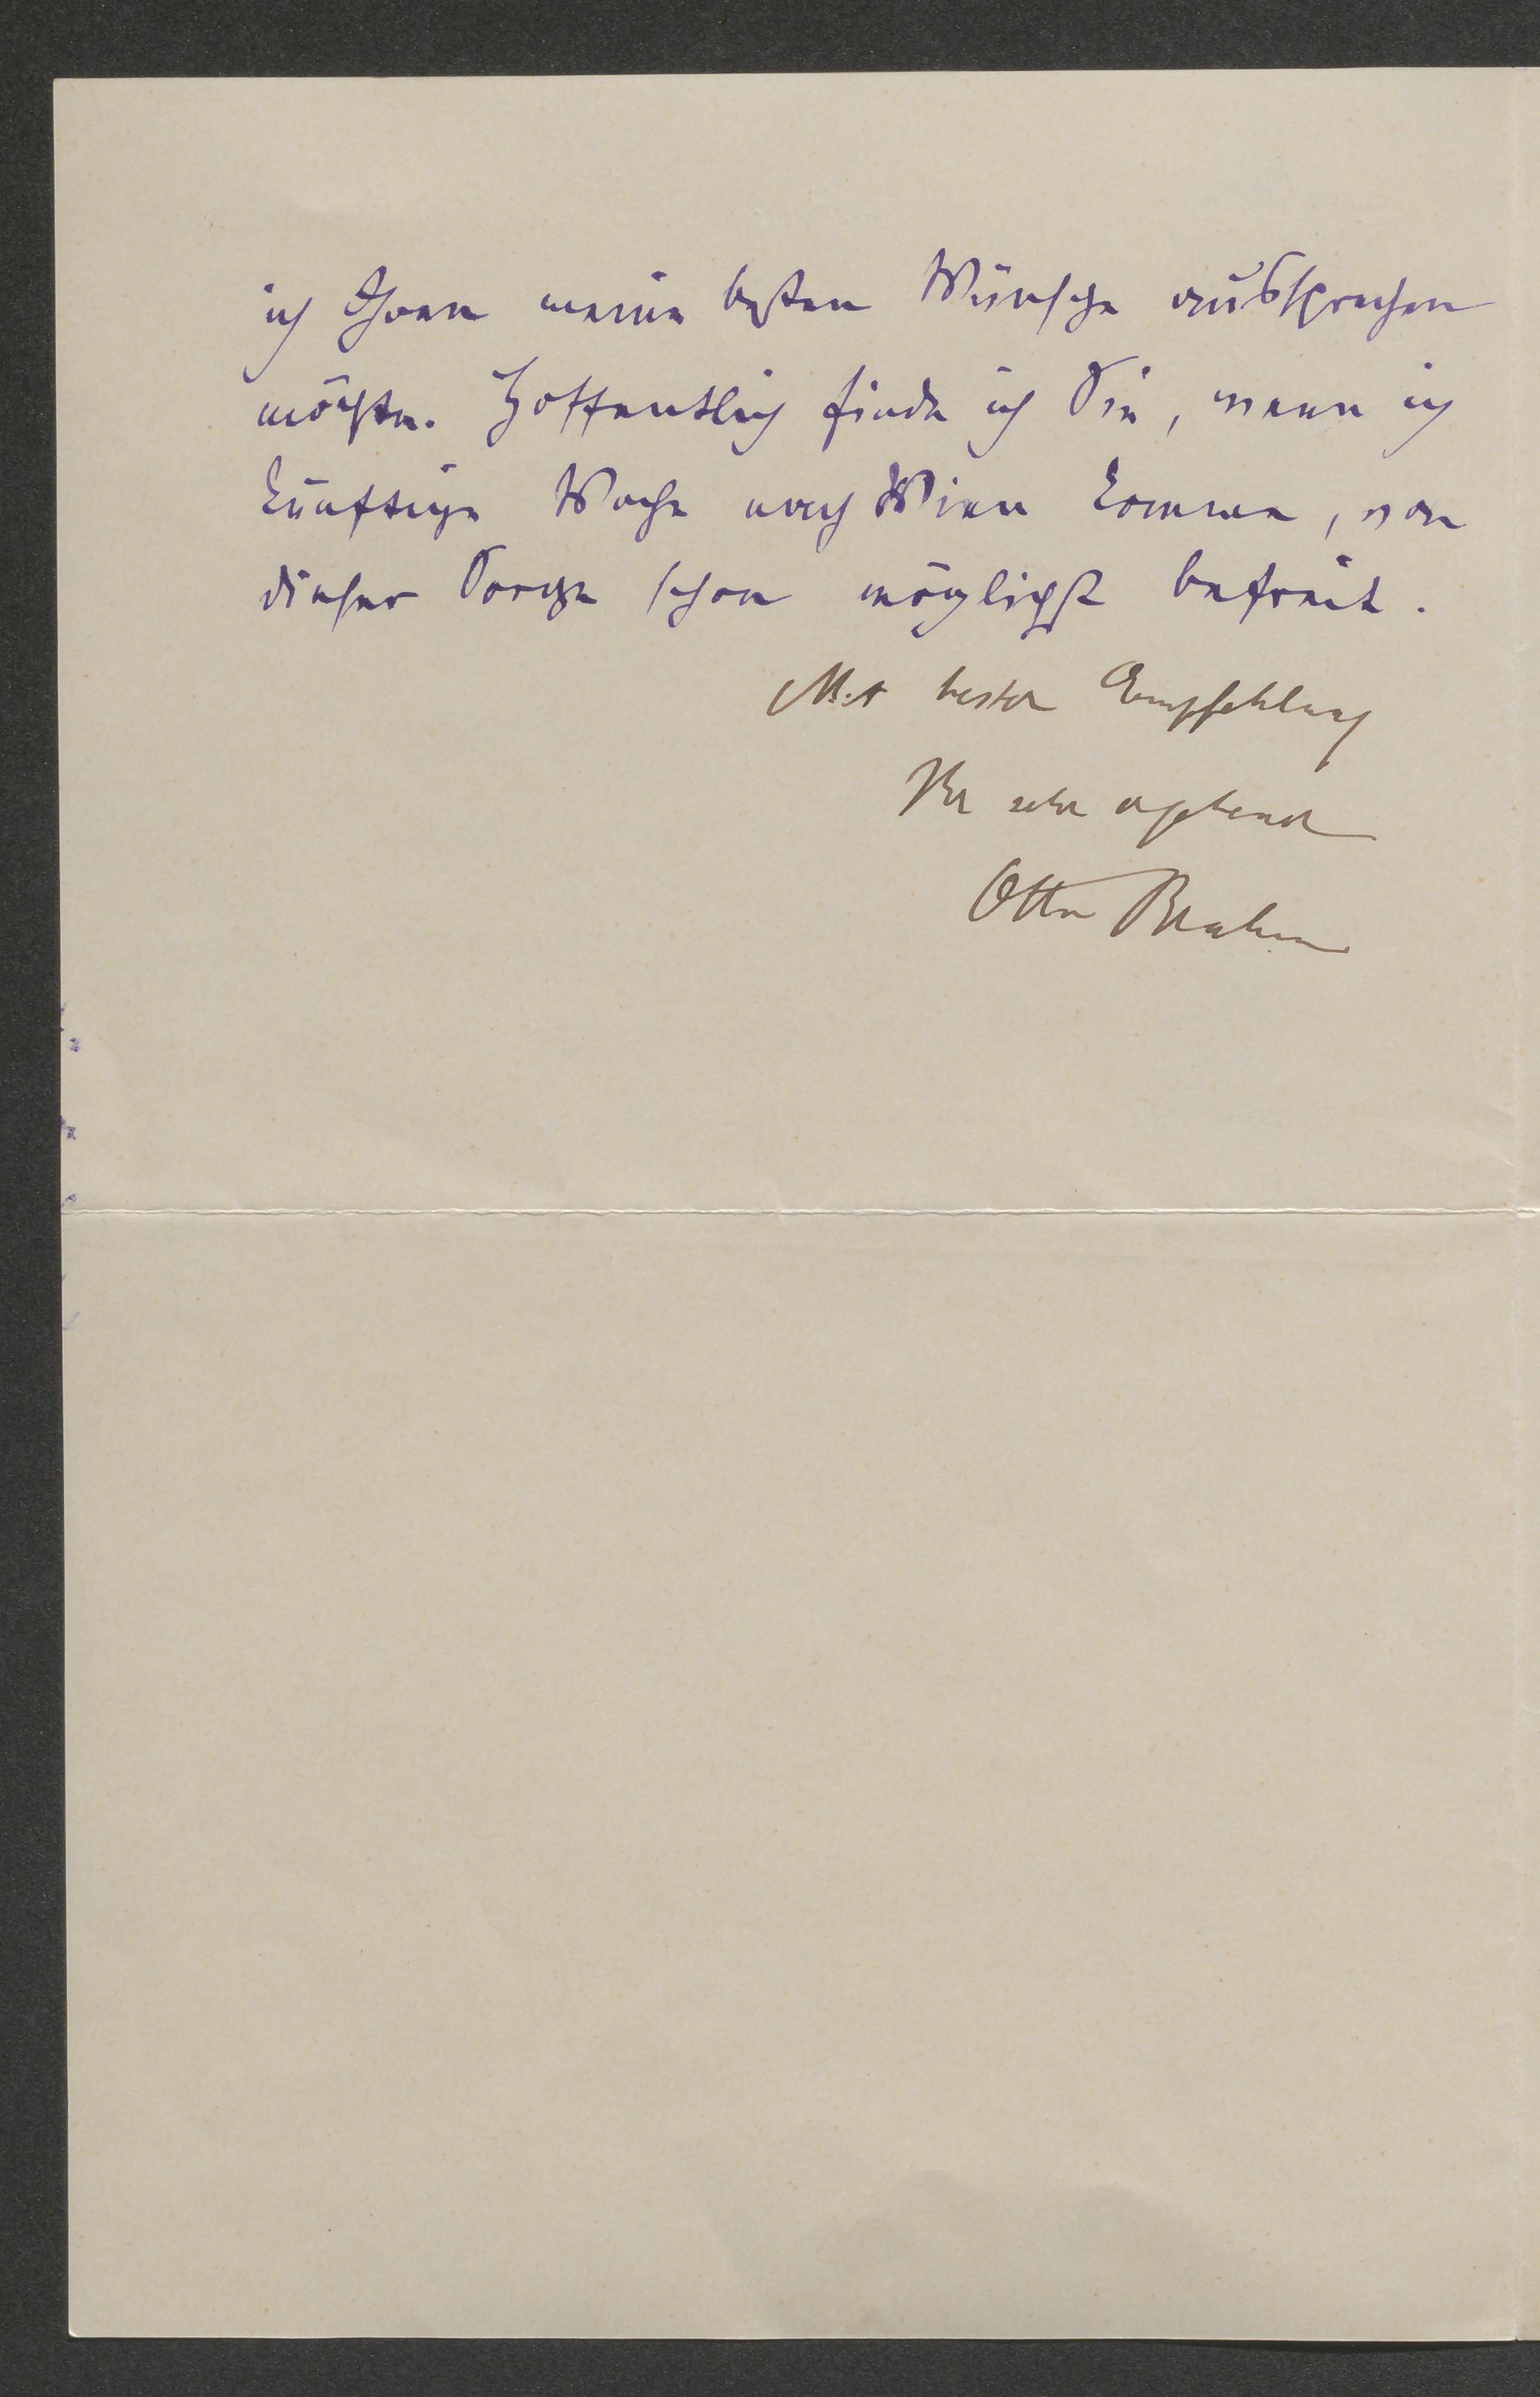 ich Ihnen meine besten Wünsche aussprechen
möchte. Hoffentlich finde ich Sie, wenn ich
künftige Woche nach Wien komme, von
dieser Sorge schon möglichst befreit.
Mit bester Empfehlung
Ihr sehr ergebener
Otto Brahm